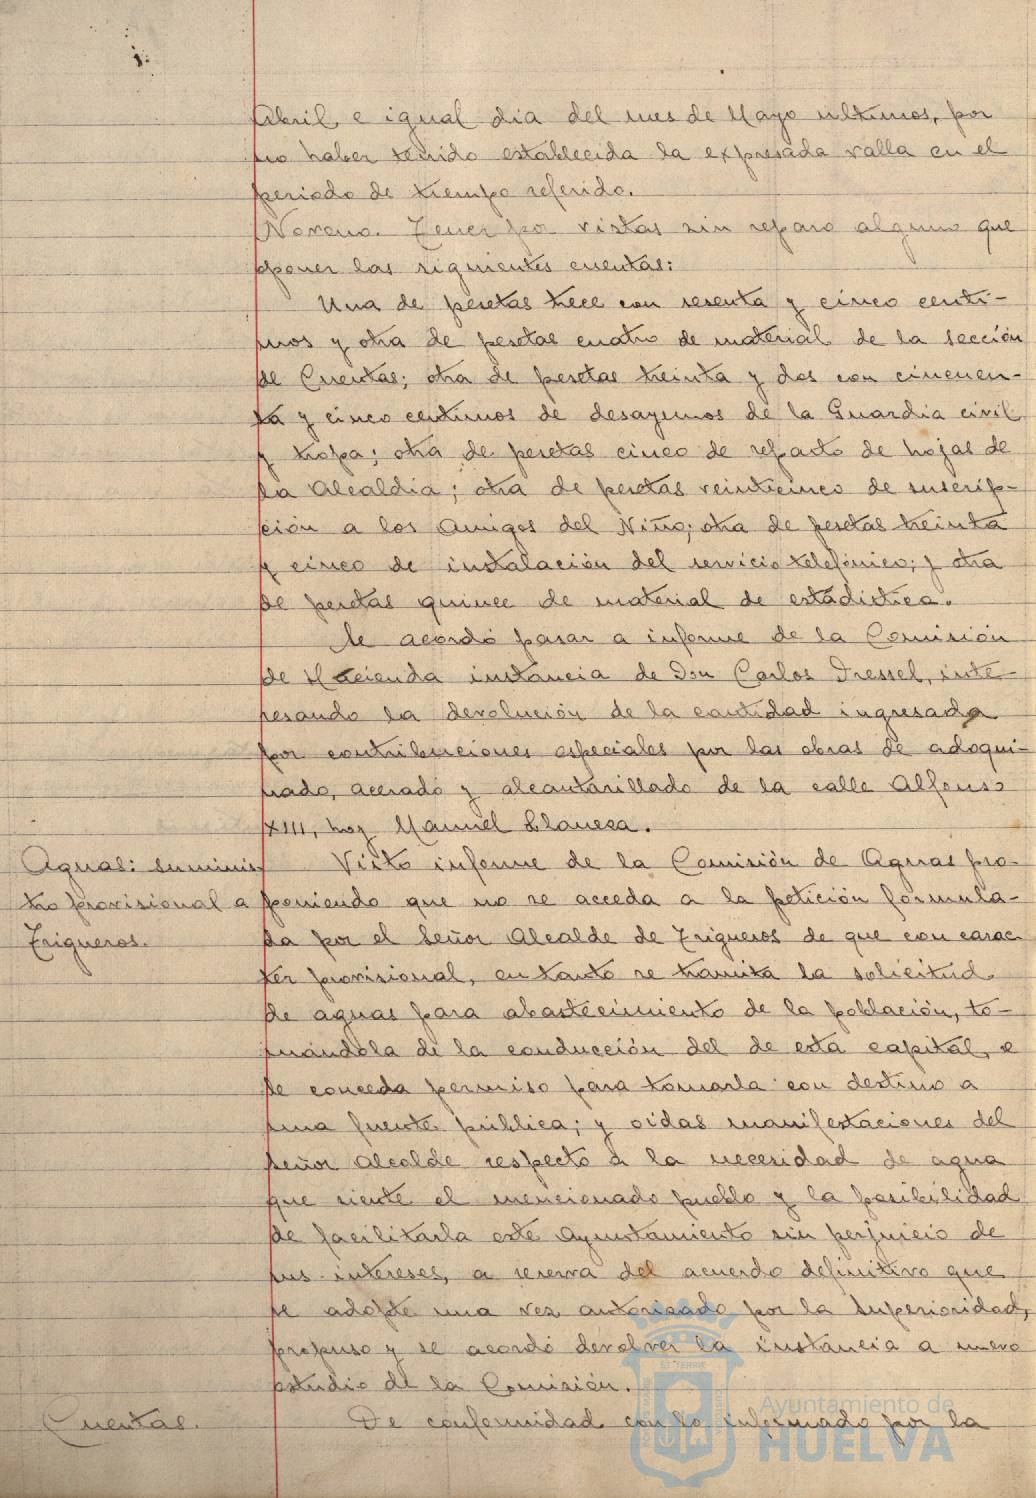 Abril e igual dia del mes de Mayo ultimos, por
no haber tenido establecida la expresada valla en el
periodo de tiempo referido.
Noveno. Tener por vistas sin reparo alguno que
oponer las siguientes cuentas:
Una de pesetas trece con sesenta y cinco centi-
mos y otra de pesetas cuatro de material de la Sección
de Cuentas; otra de pesetas treinta y dos con cincuen-
ta y cinco centimos de desayunos de la Guardia civil
y tropa; otra de pesetas cinco de reparto de hojas de
la Alcaldia; otra de pesetas veinticinco de suscrip-
ción a los Amigos del Niño; otra de pesetas treinta
y cinco de instalación del servicio telefónico; y otra
de pesetas quince de material de estadistica.
Se acordó pasar a informe de la Comisión
de Hacienda instancia de Don Carlos Dressel, inte-
resando la devolución de la cantidad ingresada
por contribuciones especiales por las obras de adoqui-
nado, acerado y alcantarillado de la calle Alfonso
XIII, hoy Manuel Llaneza.
Aguas: suminis
tro provisional a
Trigueros.
Visto informe de la Comisión de Aguas pro-
poniendo que no se acceda a la petición formula-
da por el Señor Alcalde de Trigueros de que con carac-
ter provisional, en tanto se tramita la solicitud
de aguas para abastecimiento de la población, to-
mándola de la conducción del de esta capital, e
se conceda permiso para tomarla con destino a
una fuente pública; y oidas manifestaciones del
Señor Alcalde respecto a la necesidad de agua
que siente el mencionado pueblo y la posibilidad
de facilitarla este Ayuntamiento sin perjuicio de
sus intereses, a reserva del acuerdo definitivo que
se adopte una vez autorizado por la Superioridad,
propuso y se acordó devolver la instancia a nuevo
estudio de la Comisión.
Cuentas.
De conformidad con lo informado por la
Ayuntamiento de
HUELVA